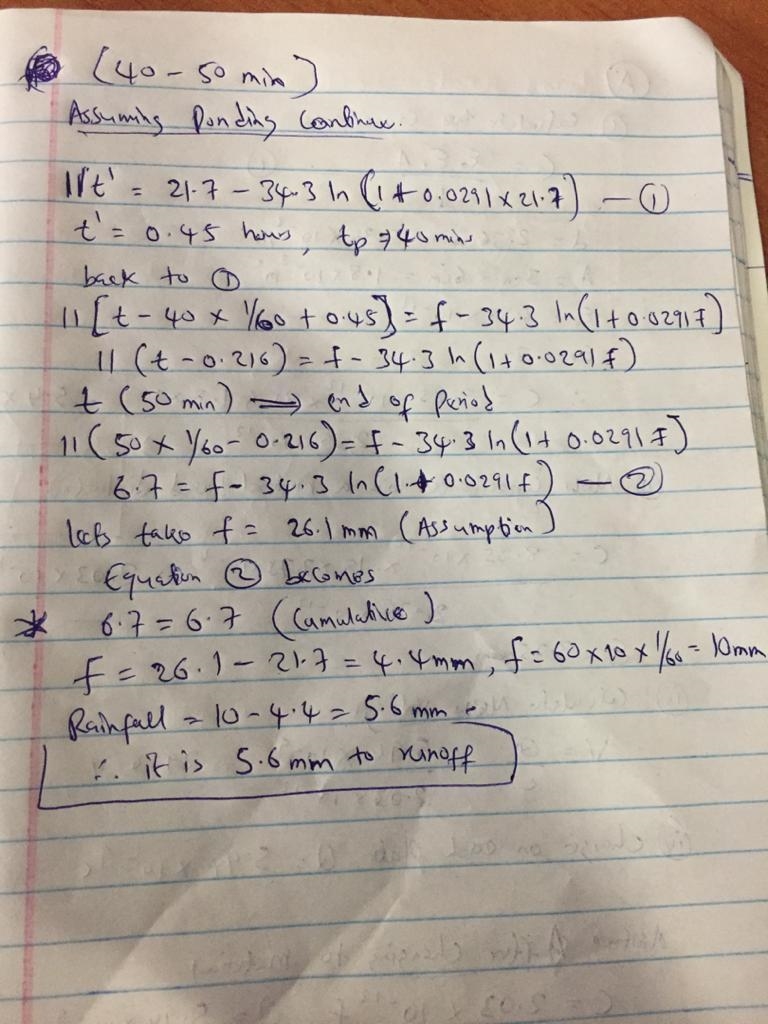 (40 - 50 min)
Assuming Ponding Continue.
11t' = 21.7 - 34.3 ln (1 + 0.0291 x 21.7) — ①
t' = 0.45 hours, tp => 40 mins
back to ①
11 [t - 40 x 1/60 + 0.45] = f - 34.3 ln(1 + 0.0291 f]
11 (t - 0.216) = f - 34.3 ln (1 + 0.0291 f)
t (50 min) ⟹ end of period
11 (50 x 1/60 - 0.216) = f - 34.3 ln (1 + 0.0291 f]
6.7 = f - 34.3 ln (1 + 0.0291 f) — ②
lets take f = 26.1 mm (Assumption)
Equation ② becomes
* 6.7 = 6.7 (Cumulative)
f = 26.1 - 21.7 = 4.4mm, f = 60 x 10 x 1/60 = 10mm
Rainfall = 10 - 4.4 = 5.6 mm.
∴ it is 5.6 mm to runoff